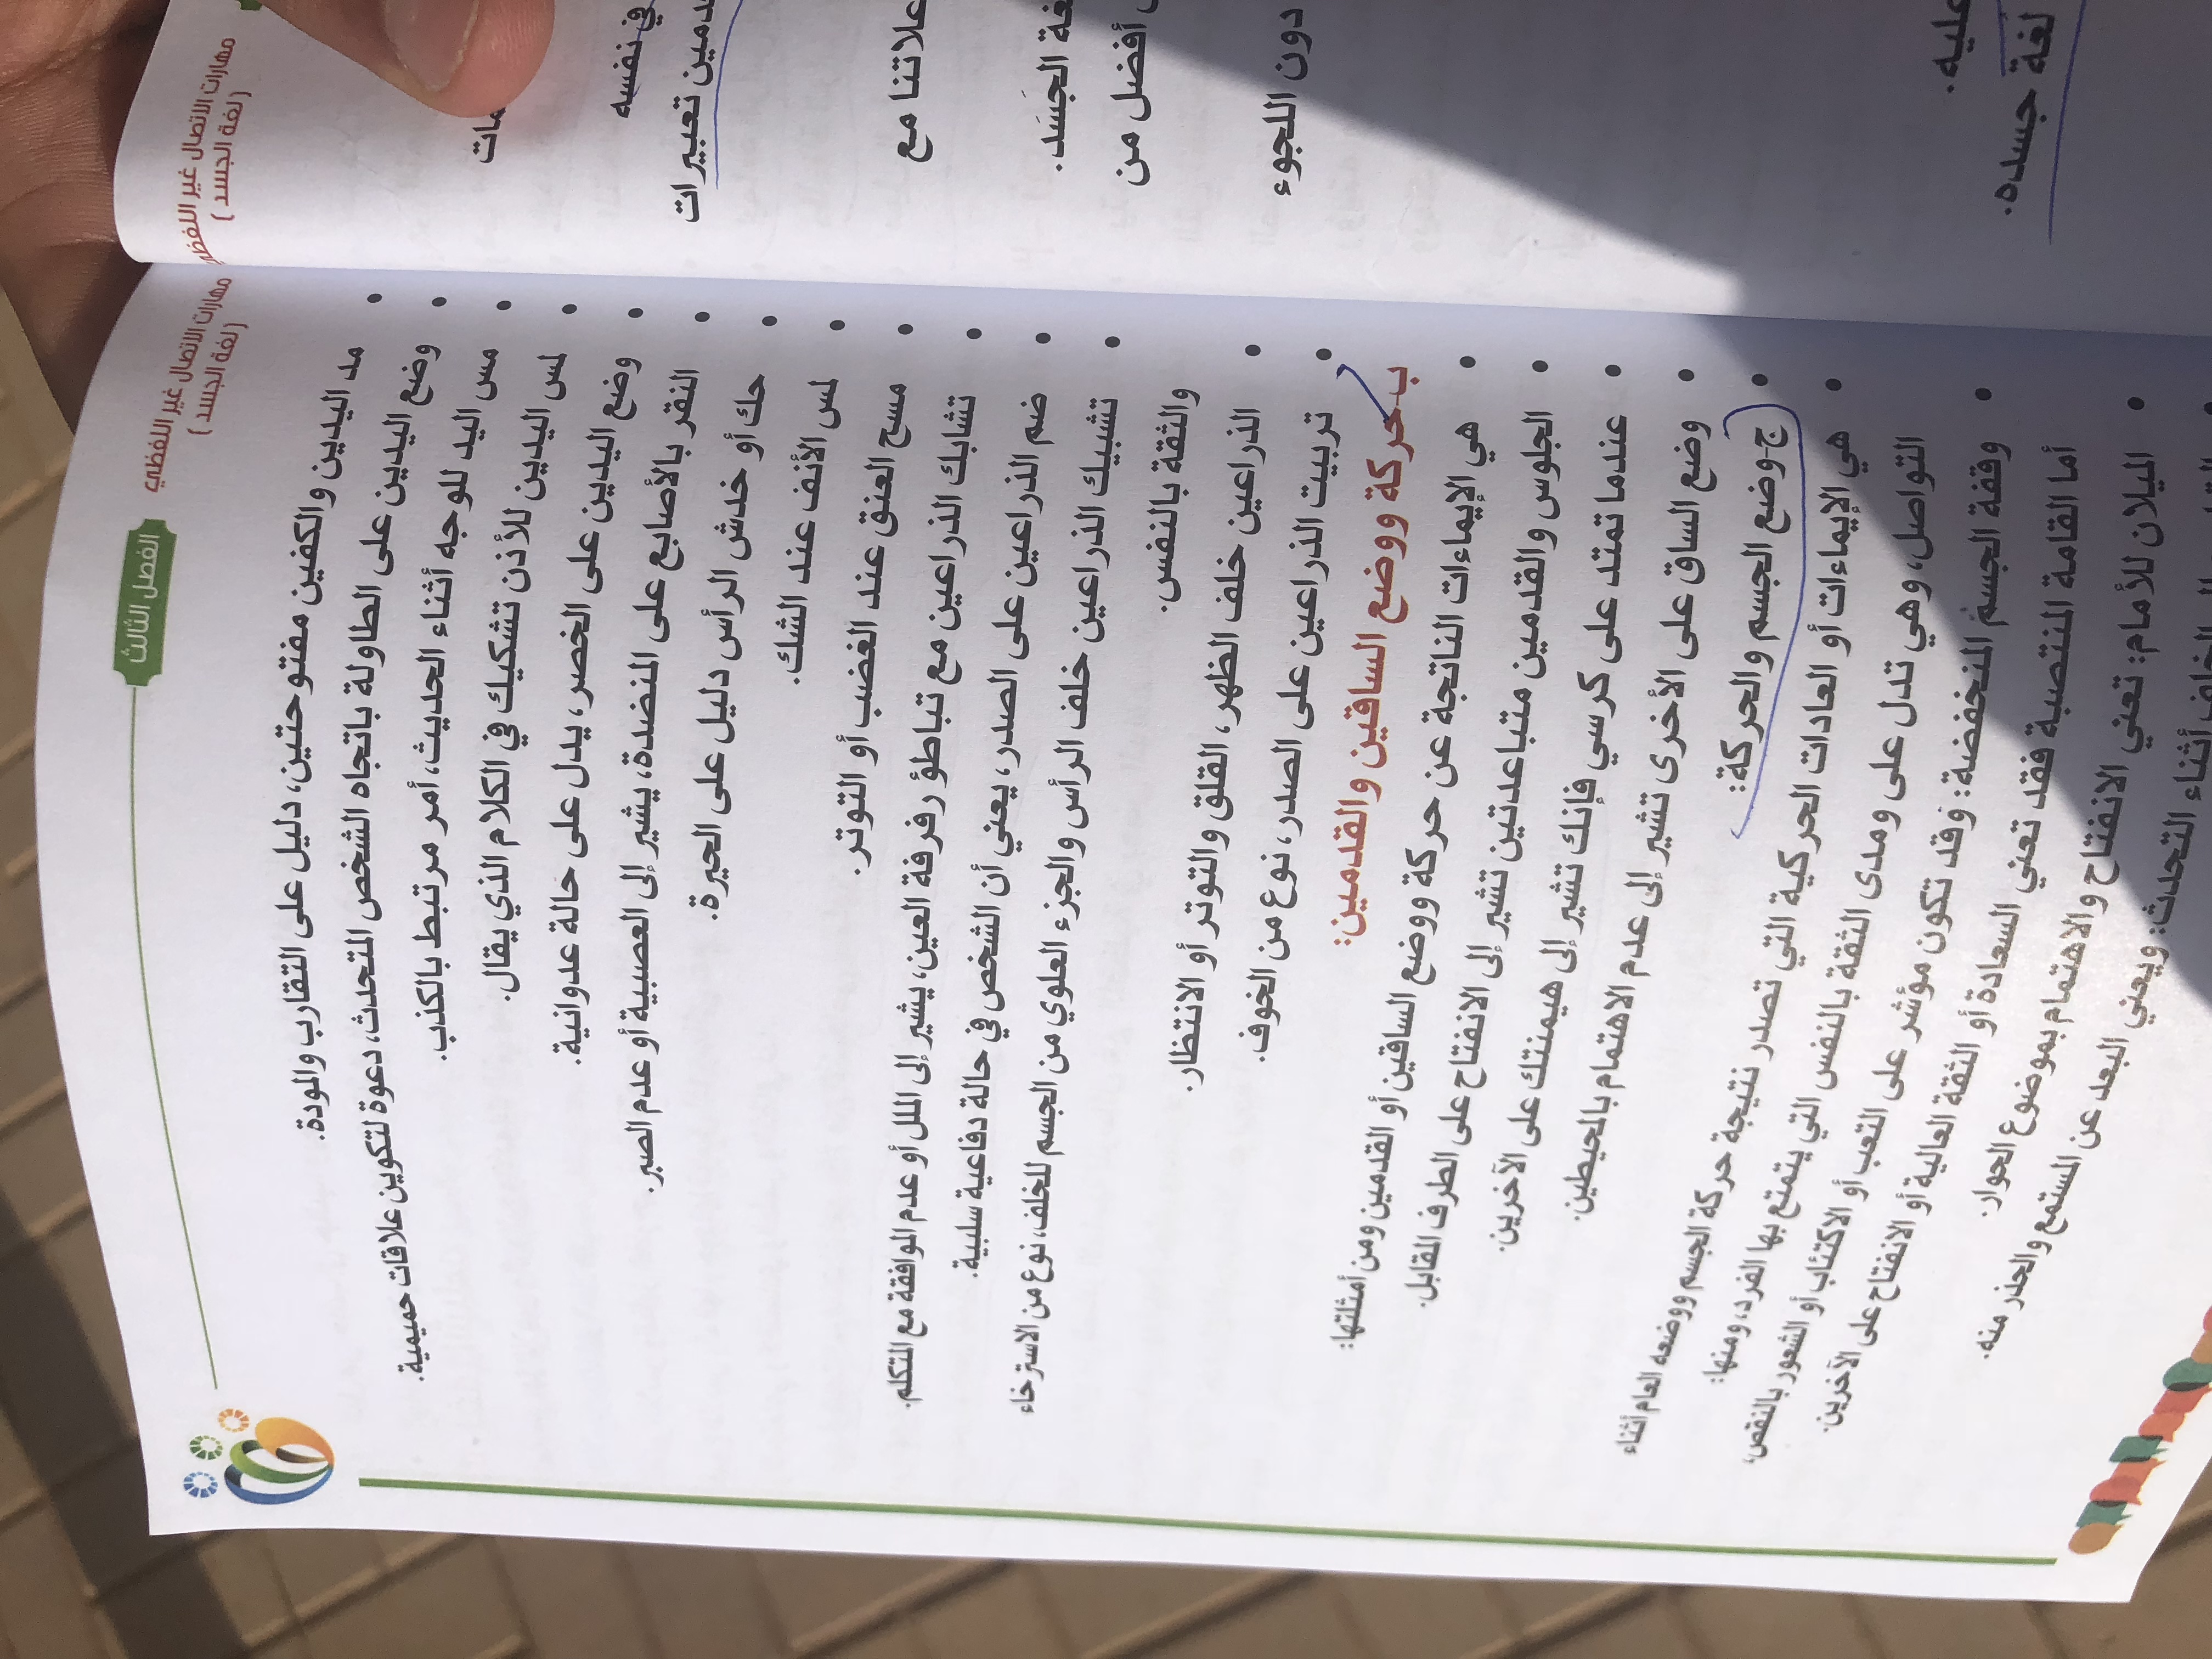 الفصل الثالث
مهارات الاتصال غير اللفظي
(لغة الجسد)
مد اليدين والكفين مفتوحتين، دليل على التقارب والمودة.
وضع اليدين على الطاولة باتجاه الشخص المتحدث، دعوة لتكوين علاقات حميمية.
مس اليد للوجه أثناء الحديث، أمر مرتبط بالكذب.
لمس اليدين للأذن تشكيك في الكلام الذي يقال.
وضع اليدين على الخصر، يدل على حالة عدوانية.
النقر بالأصابع على المنضدة، يشير إلى العصبية أو عدم الصبر.
حك أو خدش الرأس دليل على الحيرة.
لمس الأنف عند الشك.
مسح العنق عند الغضب أو التوتر.
تشابك الذراعين مع تباطؤ رفرفة العين، يشير إلى الملل أو عدم الموافقة مع المتكلم.
ضم الذراعين على الصدر، يعني أن الشخص في حالة دفاعية سلبية.
تشبيك الذراعين خلف الرأس والجزء العلوي من الجسم للخلف، نوع من الاسترخاء
والثقة بالنفس.
الذراعين خلف الظهر، القلق والتوتر أو الانتظار.
تربيت الذراعين على الصدر، نوع من الخوف.
ب- حركة ووضع الساقين والقدمين:
هي الإيماءات الناتجة عن حركة ووضع الساقين أو القدمين ومن أمثلتها:
الجلوس والقدمين متباعدتين تشير إلى الانفتاح على الطرف المقابل.
عندما تمتد على كرسي فإنك تشير إلى هيمنتك على الآخرين.
وضع الساق على الأخرى تشير إلى عدم الاهتمام بالمحيطين.
ج- وضع الجسم والحركة:
هي الإيماءات أو العادات الحركية التي تصدر نتيجة حركة الجسم ووضعه العام أثناء
التواصل، وهي تدل على ومدى الثقة بالنفس التي يتمتع بها الفرد، ومنها:
وقفة الجسم المنخفضة: وقد تكون مؤشر على التعب أو الاكتئاب أو الشعور بالنقص،
أما القامة المنتصبة فقد تعني السعادة أو الثقة العالية أو الانفتاح على الآخرين.
الميلان للأمام: تعني الانفتاح والاهتمام بموضوع الحوار.
أثناء التحدث: ويعني البعد عن المستمع والحذر منه.
مهارات الاتصال غير اللفظي
(لغة الجسد)
في نفسه
تعبيرات
علاتنا مع
الجسد.
أفضل من
دون اللجوء
عليه.
لغة جسده.